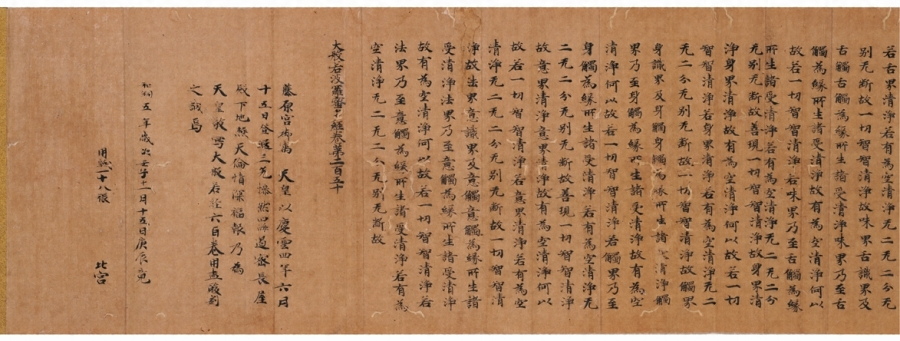 若舌界清淨若有為空清淨无二无二分无
別无断故一切智智清淨故味界舌識界及
舌觸舌觸為縁所生諸受清淨味界乃至舌
觸為縁所生諸受清淨故有為空清淨何以
故若一切智智清淨若味界乃至舌觸為縁
所生諸受清淨若有為空清淨无二无二分
无別无断故善現一切智智清淨故身界清
淨身界清淨故有為空清淨何以故若一切
智智清淨若身界清淨若有為空清淨无二
无二分无別无断故一切智智清淨故觸界
身識界及身觸身觸為縁所生諸受清淨觸
界乃至身觸為縁所生諸受清淨故有為空
清淨何以故若一切智智清淨若觸界乃至
身觸為縁所生諸受清淨若有為空清淨无
二无二分无別无断故善現一切智智清淨
故意界清淨意界清淨故有為空清淨何以
故若一切智智清淨若意界清淨若有為空
清淨无二无二分无別无断故一切智智清
淨故法界意識界及意觸意觸為縁所生諸
受清淨法界乃至意觸為縁所生諸受清淨
故有為空清淨何以故若一切智智清淨若
法界乃至意觸為縁所生諸受清淨若有為
空清淨无二无二分无別无断故
大般若波羅蜜多經巻第二百
藤原宮御寓 天皇以慶雲四年六月
十五日登遐三光惨然四海遏密長屋
殿下地極天倫情深福報乃為
天皇敬写大般若経六百巻用盡酸割
之誠焉
和銅五年歳次壬子十一月十五日庚辰竟
用紙一十八張 北宮